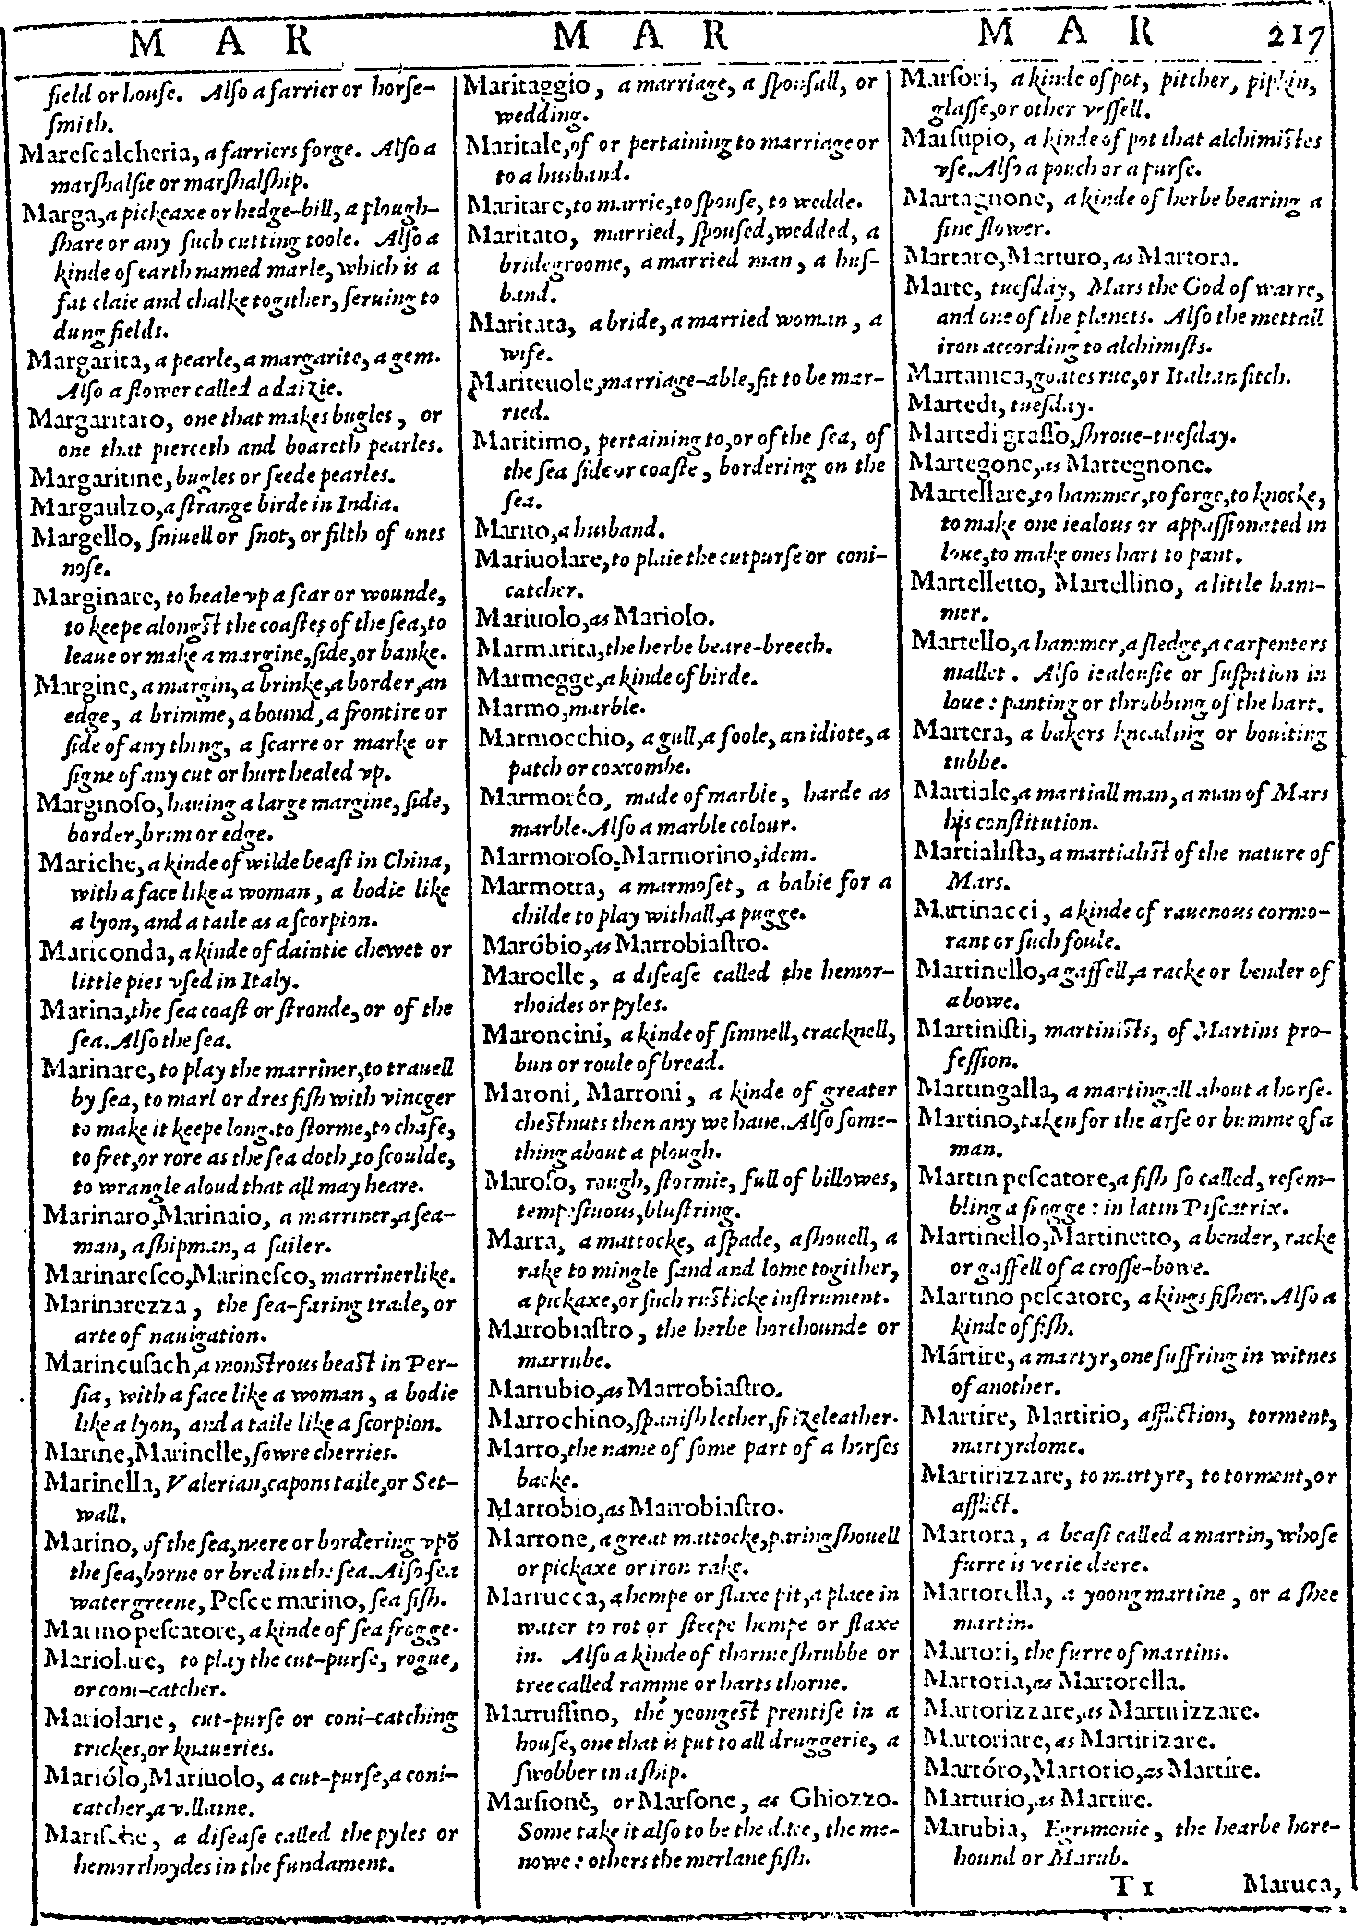 M A R M A R M A R 217
field or house. Also a farrier or horse-
smith.
Marescalcheria, a farriers forge. Also a
marshalsie or marshalship.
Marga, a pickeaxe or hedge-bill, a plough-
share or any such cutting toole. Also a
kinde of earth named marle, which is a
fat claie and chalke togither, seruing to
dung fields.
Margarita, a pearle, a margarite, a gem.
Also a flower called a daizie.
Margaritaro, one that makes bugles, or
one that pierceth and boareth pearles.
Margaritine, bugles or seede pearles.
Margaulzo, a strange birde in India.
Margello, sniuell or snot, or filth of ones
nose.
Marginare, to heale vp a scar or wounde,
to keepe alongst the coastes of the sea, to
leaue or make a margine, side, or banke.
Margine, a margin, a brinke, a border, an
edge, a brimme, a bound, a frontire or
side of any thing, a scarre or marke or
signe of any cut or hurt healed vp.
Marginoso, hauing a large margine, side,
border, brim or edge.
Mariche, a kinde of wilde beast in China,
with a face like a woman, a bodie like
a lyon, and a taile as a scorpion.
Mariconda, a kinde of daintie chewet or
little pies vsed in Italy.
Marina, the sea coast or stronde, or of the
sea. Also the sea.
Marinare, to play the marriner, to trauell
by sea, to marl or dres fish with vineger
to make it keepe long. to storme, to chafe,
to fret, or rore as the sea doth, to scoulde,
to wrangle aloud that all may heare.
Marinaro, Marinaio, a marriner, a sea-
man, a shipman, a sailer.
Marinaresco, Marinesco, marrinerlike.
Marinarezza, the sea-faring trade, or
arte of nauigation.
Marincusach, a monstrous beast in Per-
sia, with a face like a woman, a bodie
like a lyon, and a taile like a scorpion.
Marine, Marinelle, sowre cherries.
Marinella, Valerian, capons taile, or Set-
wall.
Marino, of the sea, neere or bordering vpō
the sea, borne or bred in the sea. Also sea
watergreene, Pesce marino, sea fish.
Marino pescatore, a kinde of sea frogge.
Mariolare, to play the cut-purse, rogue,
or coni-catcher.
Mariolarie, cut-purse or coni-catching
trickes, or knaueries.
Mariólo, Mariuolo, a cut-purse, a coni-
catcher, a villaine.
Marische, a disease called the pyles or
hemorrhoydes in the fundament.
Maritaggio, a marriage, a spousall, or
wedding.
Maritale, of or pertaining to marriage or
to a husband.
Maritare, to marrie, to spouse, to wedde.
Maritato, married, spoused, wedded, a
bridegroome, a married man, a hus-
band.
Maritata, a bride, a married woman, a
wife.
Mariteuole, marriage-able, fit to be mar-
ried.
Maritimo, pertaining to, or of the sea, of
the sea side or coaste, bordering on the
sea.
Marito, a husband.
Mariuolare, to plaie the cutpurse or coni-
catcher.
Mariuolo, as Mariolo.
Marmarita, the herbe beare-breech.
Marmegge, a kinde of birde.
Marmo, marble.
Marmocchio, a gull, a foole, an idiote, a
patch or coxcombe.
Marmoréo, made of marble, harde as
marble. Also a marble colour.
Marmoroso, Marmorino, idem.
Marmotta, a marmoset, a babie for a
childe to play withall, a pugge.
Maróbio, as Marrobiastro.
Maroelle, a disease called the hemor-
rhoides or pyles.
Maroncini, a kinde of simnell, cracknell,
bun or roule of bread.
Maroni, Marroni, a kinde of greater
chestnuts then any we haue. Also some-
thing about a plough.
Maroso, rough, stormie, full of billowes,
tempestuous, blustring.
Marra, a mattocke, a spade, a shouell, a
rake to mingle sand and lome togither,
a pickaxe, or such rusticke instrument.
Marrobiastro, the herbe horehounde or
marrube.
Marrubio, as Marrobiastro.
Marrochino, spanish lether, frizeleather.
Marro, the name of some part of a horses
backe.
Marrobio, as Marrobiastro.
Marrone, a great mattocke, paring shouell
or pickaxe or iron rake.
Marrucca, a hempe or flaxe pit, a place in
water to rot or steepe hempe or flaxe
in. Also a kinde of thorne shrubbe or
tree called ramme or harts thorne.
Marrussino, the yoongest prentise in a
house, one that is put to all druggerie, a
swobber in a ship.
Marsioné, or Marsone, as Ghiozzo.
Some take it also to be the dace, the me-
nowe: others the merlane fish.
Marsori, a kinde of pot, pitcher, pipkin,
glasse, or other vessell.
Marsupio, a kinde of pot that alchimistes
vse. Also a pouch or a purse.
Martagnone, a kinde of herbe bearing a
fine flower.
Martaro, Marturo, as Martora.
Marte, tuesday, Mars the God of warre,
and one of the planets. Also the mettall
iron according to alchimists.
Martanica, goates rue, or Italian fitch.
Martedi, tuesday.
Martedi grasso, shroue-tuesday.
Martegone, as Martegnone.
Martellare, to hammer, to forge, to knocke,
to make one iealous or appassionated in
loue, to make ones hart to pant.
Martelletto, Martellino, a little ham-
mer.
Martello, a hammer, a sledge, a carpenters
mallet. Also iealousie or suspition in
loue: panting or throbbing of the hart.
Martera, a bakers kneading or boulting
tubbe.
Martiale, a martiall man, a man of Mars
his constitution.
Martialista, a martialist of the nature of
Mars.
Martinacci, a kinde of rauenous cormo-
rant or such foule.
Martinello, a gaffell, a racke or bender of
a bowe.
Martinisti, martinists, of Martins pro-
fession.
Martingalla, a martingall about a horse.
Martino, taken for the arse or bumme of a
man.
Martin pescatore, a fish so called, resem-
bling a frogge: in latin Piscatrix.
Martinello, Martinetto, a bender, racke
or gaffell of a crosse-bowe.
Martino pescatore, a kings fisher. Also a
kinde of fish.
Mártire, a martyr, one suffring in witnes
of another.
Martíre, Martirio, affliction, torment,
martyrdome.
Martirizzare, to martyre, to torment, or
afflict.
Martora, a beast called a martin, whose
furre is verie deere.
Martorella, a yoong martine, or a shee
martin.
Martori, the furre of martins.
Martoria, as Martorella.
Martorizzare, as Martirizzare.
Martoriare, as Martirizare.
Martóro, Martorio, as Martíre.
Marturio, as Martire.
Marubia, Egrimonie, the hearbe hore-
hound or Marub.
T 1 Maruca,